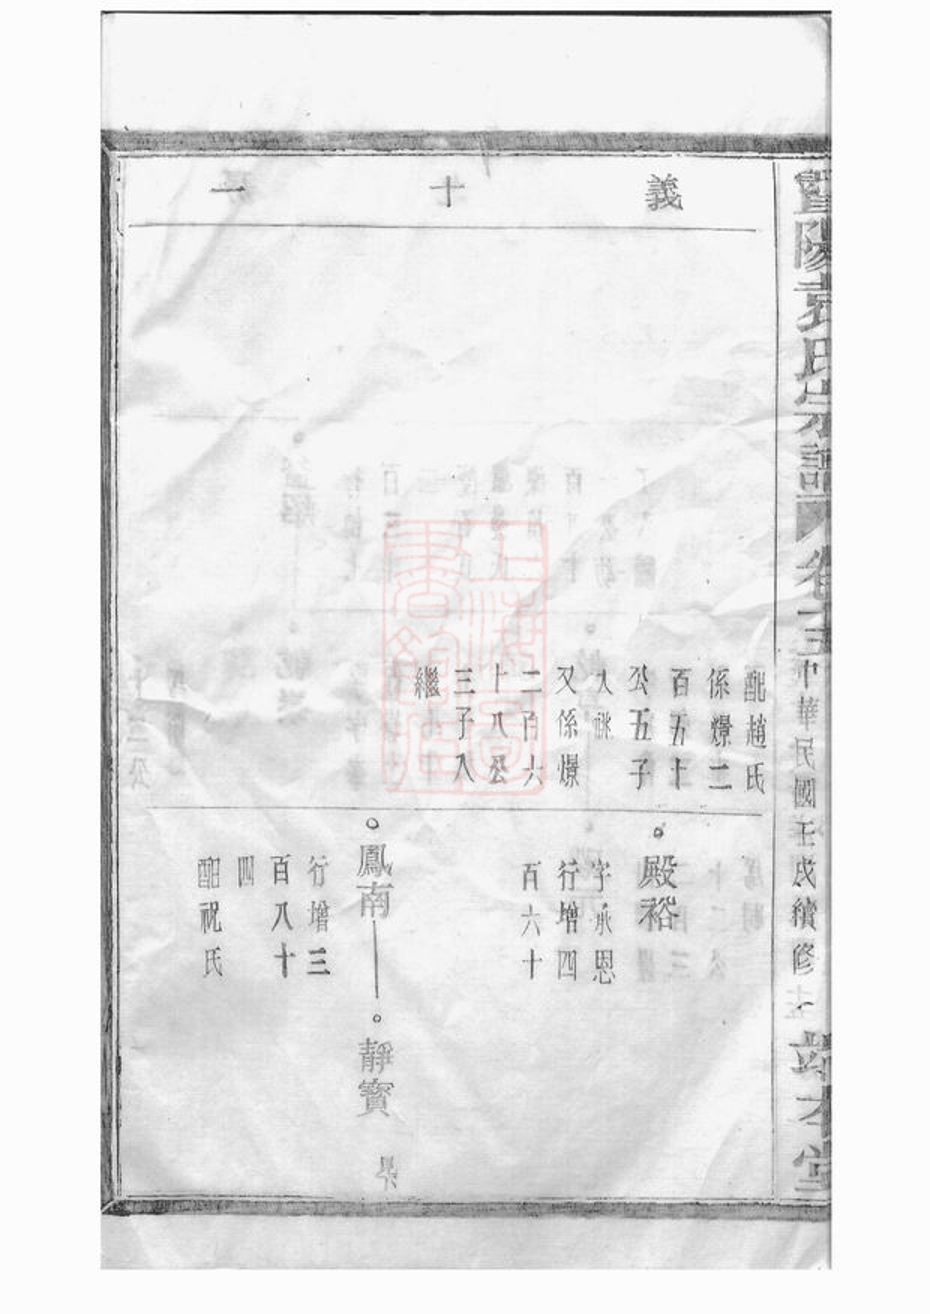 暨陽袁氏宗譜 卷十五 中華民國壬戌續修 敦本堂
義十一
配趙氏
係煾二
百五十
公五子
入祧
又係煾
二百六
十八公
三子入
繼
殿裕
字承恩
行增四
百六十
鳳南 靜寳
行增三
百八十
四
配祝氏
上海圖書館藏